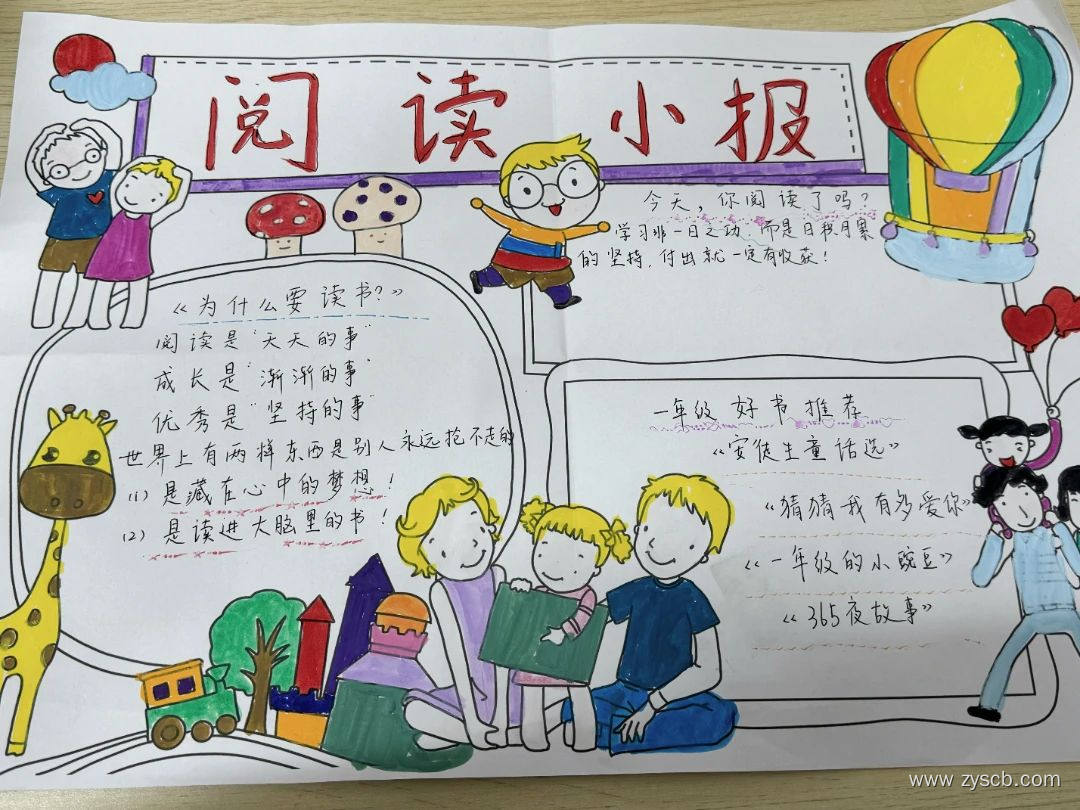 阅读小报
今天，你阅读了吗？
学习非一日之功，而是日积月累
的坚持，付出就一定有收获！
《为什么要读书？》
阅读是“天天的事”
成长是“渐渐的事”
优秀是“坚持的事”
世界上有两样东西是别人永远抢不走的
(1) 是藏在心中的梦想！
(2) 是读进大脑里的书！
一年级好书推荐
《安徒生童话选》
《猜猜我有多爱你》
《一年级的小豌豆》
《365夜故事》
www.zyscb.com